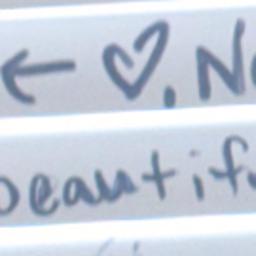 ← ♡. N
beautif